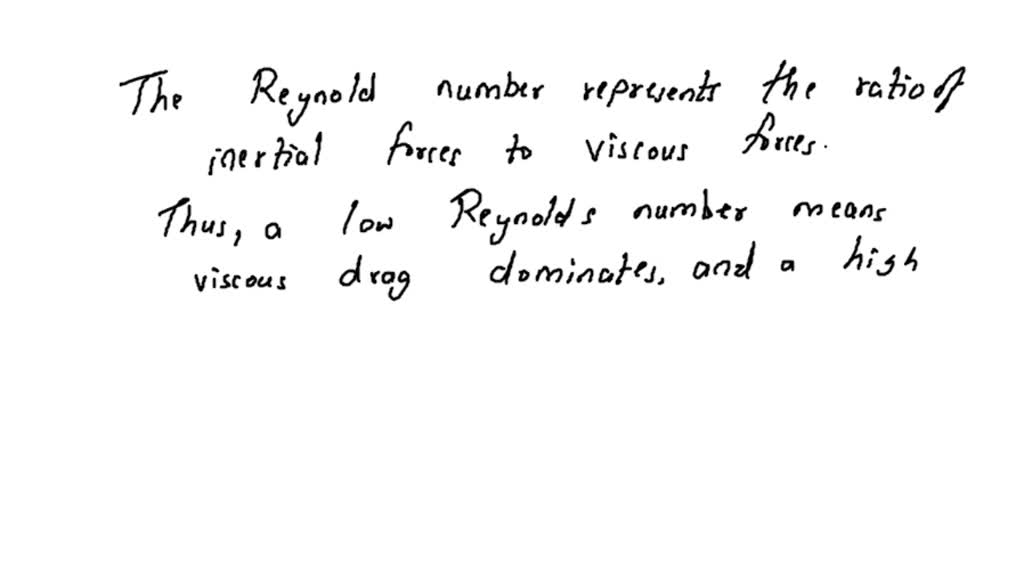 The Reynold number represents the ratio of
inertial forces to viscous forces.
Thus, a low Reynolds number means
viscous drag dominates, and a high